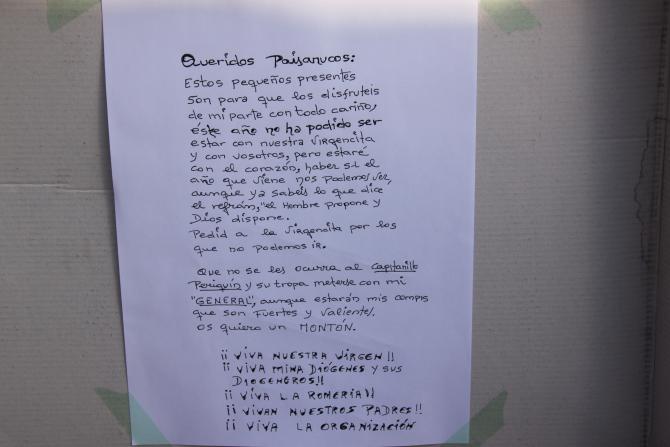 Queridos Paisanucos:
Estos pequeños presentes
son para que los disfruteis
de mi parte con todo cariño,
éste año no ha podido ser
estar con nuestra Virgencita
y con vosotros, pero estaré
con el corazón, haber si el
año que viene nos podemos ver,
aunque ya sabeis lo que dice
el refrán, "el Hombre propone y
Dios dispone.
Pedid a la Virgencita por los
que no podemos ir.
Que no se les ocurra al Capitanillo
Periquín y su tropa meterse con mi
"GENERAL", aunque estarán mis compis
que son fuertes y valientes.
os quiero un MONTÓN.
¡¡ VIVA NUESTRA VIRGEN!!
¡¡ VIVA MINA DIÓGENES y sus
DIOGENEROS!!
¡¡ VIVA LA ROMERIA!!
¡¡ VIVAN NUESTROS PADRES!!
¡¡ VIVA LA ORGANIZACIÓN